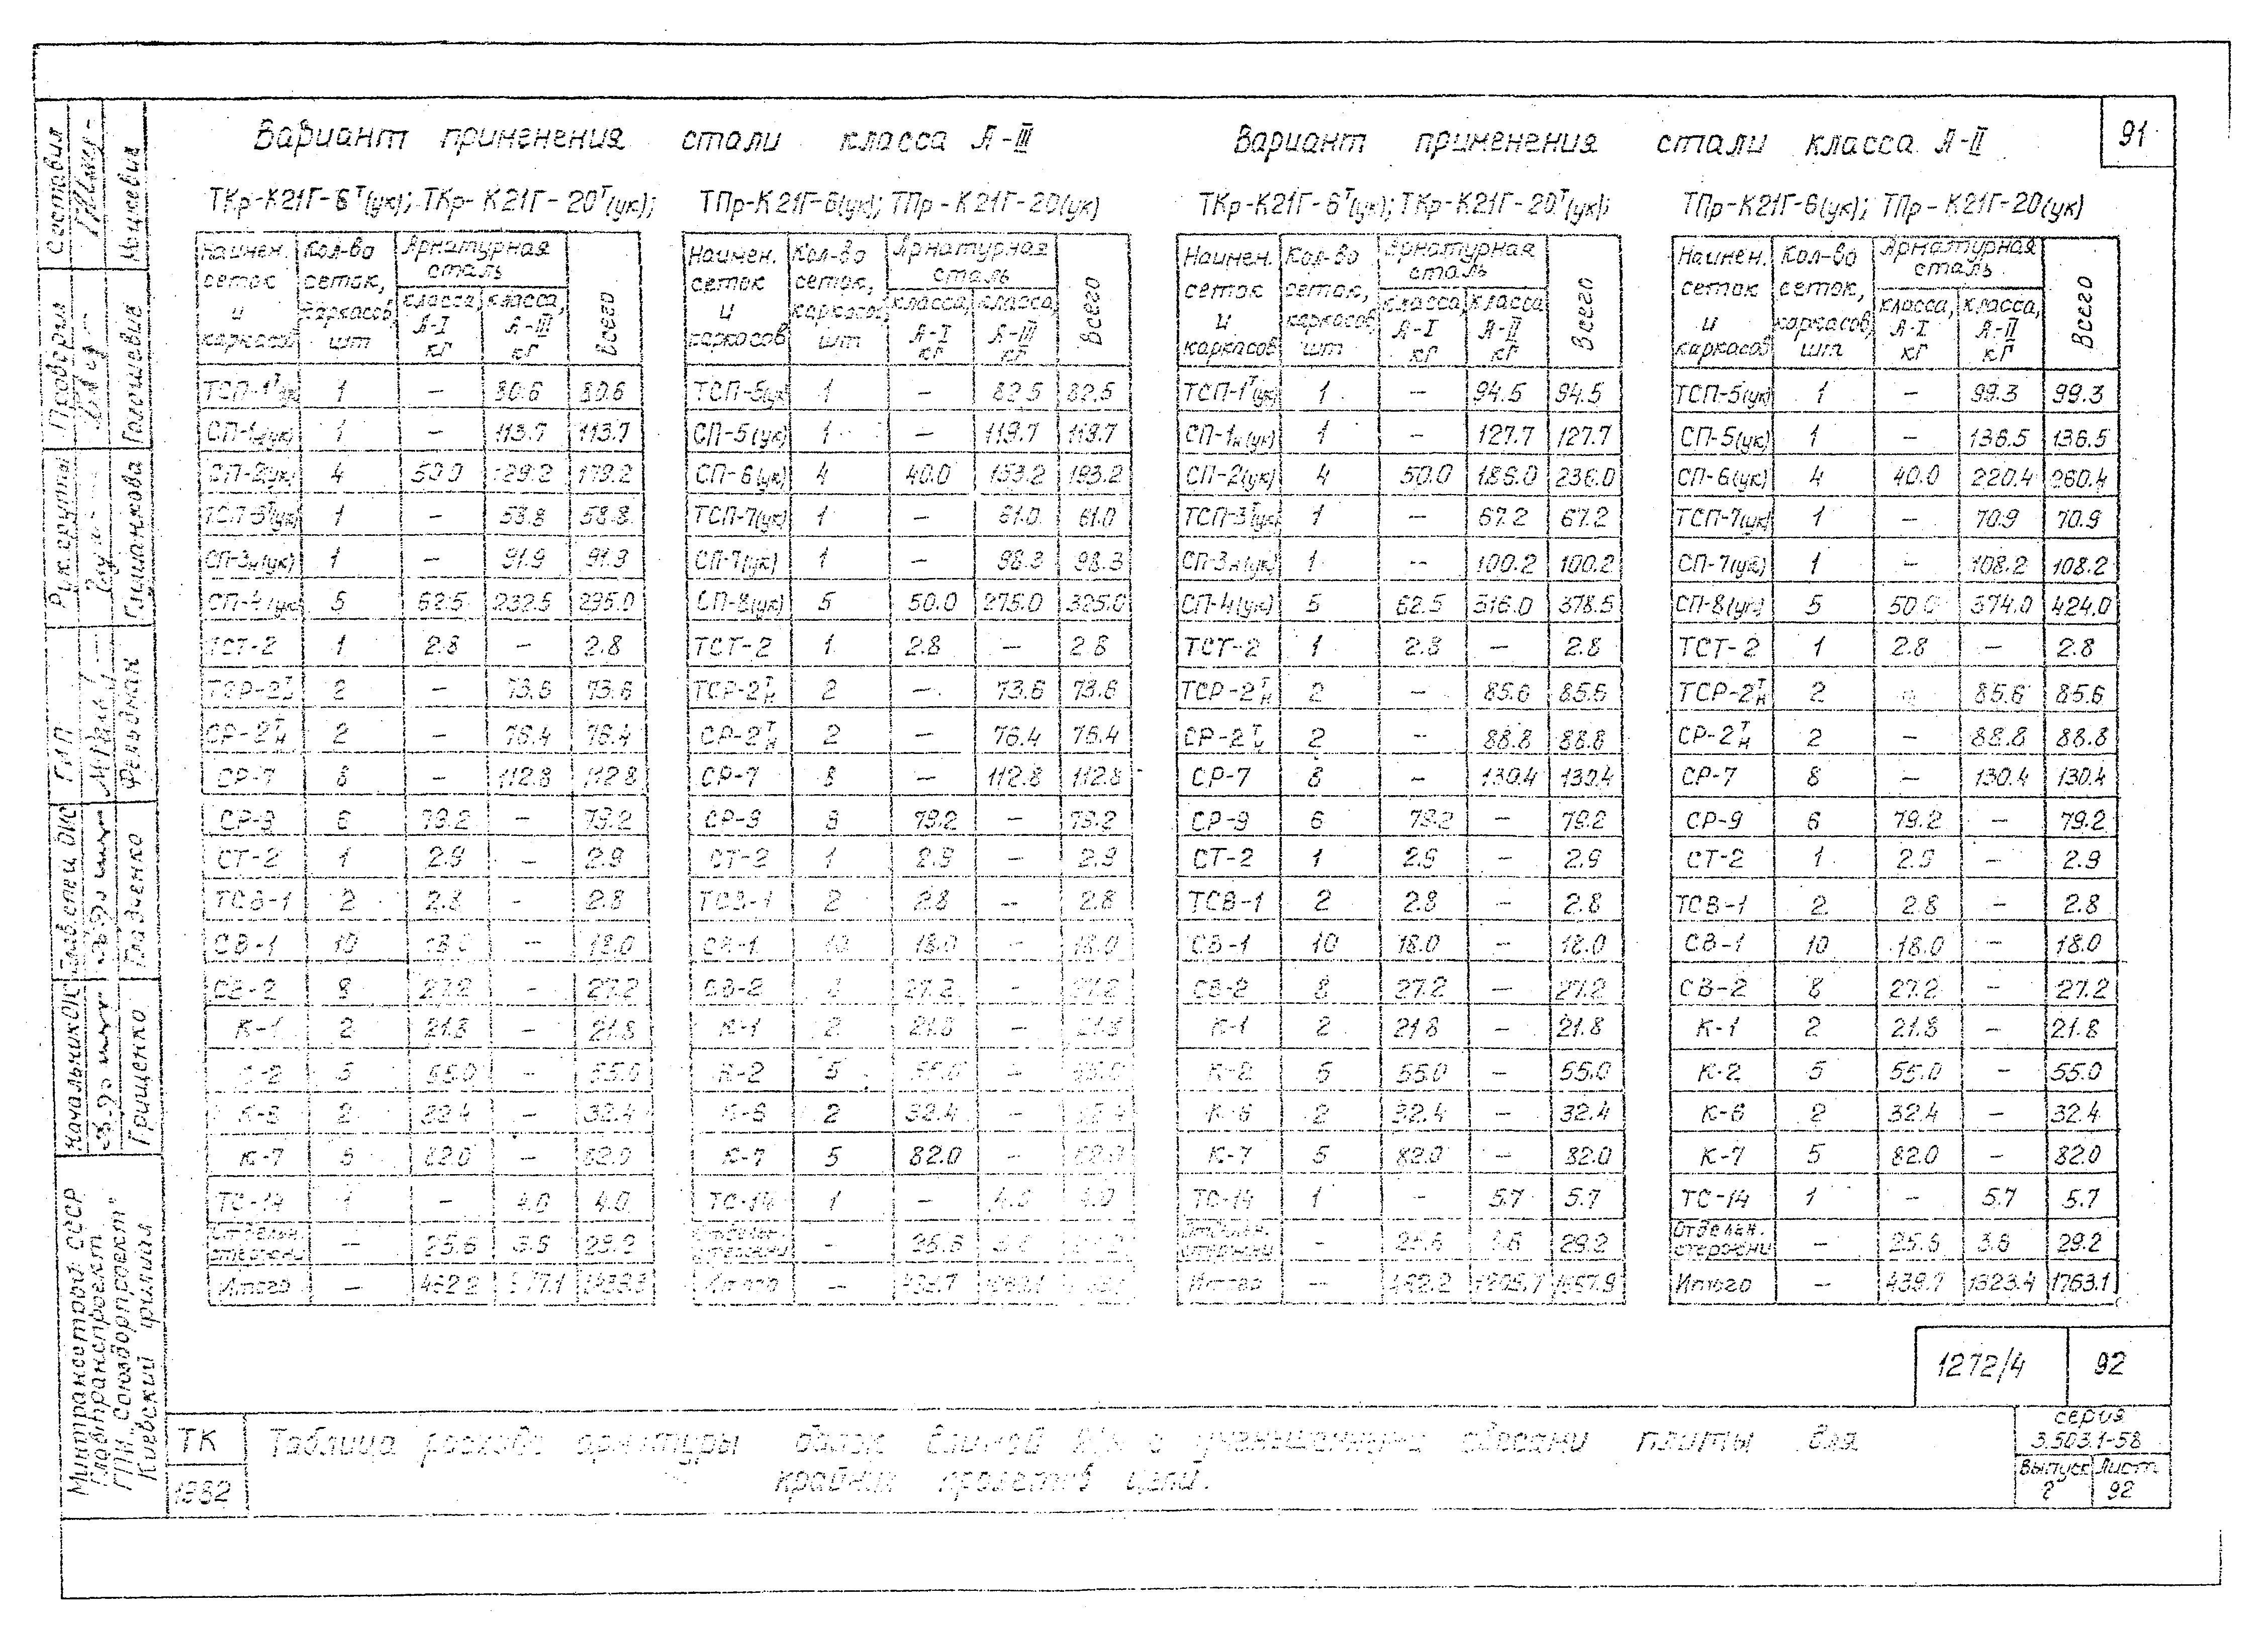 91
Вариант применения стали класса А-III
ТКр-К21Г-6ᵀ(ук); ТКр-К21Г-20ᵀ(ук); ТПр-К21Г-6(ук); ТПр-К21Г-20(ук)
Вариант применения стали класса А-II
ТКр-К21Г-6ᵀ(ук); ТКр-К21Г-20ᵀ(ук); ТПр-К21Г-6(ук); ТПр-К21Г-20(ук)
Наимен. сеток и каркасов Кол-во сеток, каркасов, шт Арматурная сталь класса, А-I кГ класса, А-III кГ Всего
ТСП-1ᵀ(ук) 1 — 80.6 80.6
СП-1н(ук) 1 — 113.7 113.7
СП-2(ук) 4 50.0 129.2 179.2
ТСП-3ᵀ(ук) 1 — 58.8 58.8
СП-3н(ук) 1 — 91.9 91.9
СП-4(ук) 5 62.5 232.5 295.0
ТСТ-2 1 2.8 — 2.8
ТСР-2ᵀн 2 — 73.6 73.6
СР-2ᵀн 2 — 76.4 76.4
СР-7 8 — 112.8 112.8
СР-9 6 79.2 — 79.2
СТ-2 1 2.9 — 2.9
ТСВ-1 2 2.8 — 2.8
СВ-1 10 18.0 — 18.0
СВ-2 8 27.2 — 27.2
К-1 2 21.8 — 21.8
К-2 5 55.0 — 55.0
К-6 2 32.4 — 32.4
К-7 5 82.0 — 82.0
ТС-14 1 — 4.0 4.0
Отдельн. стержни — 25.6 3.6 29.2
Итого — 462.2
Наимен. сеток и каркасов Кол-во сеток, каркасов, шт Арматурная сталь класса, А-I кГ класса, А-III кГ Всего
ТСП-5(ук) 1 — 82.5 82.5
СП-5(ук) 1 — 119.7 119.7
СП-6(ук) 4 40.0 153.2 193.2
ТСП-7(ук) 1 — 61.0 61.0
СП-7(ук) 1 — 98.3 98.3
СП-8(ук) 5 50.0 275.0 325.0
ТСТ-2 1 2.8 — 2.8
ТСР-2ᵀн 2 — 73.6 73.6
СР-2ᵀн 2 — 76.4 76.4
СР-7 8 — 112.8 112.8
СР-9 79.2 — 79.2
СТ-2 1 2.9 — 2.9
ТСВ-1 2 2.8 — 2.8
СВ-1 10 18.0 — 18.0
СВ-2 27.2 — 27.2
К-1 2 21.8 — 21.8
К-2 5 55.0 — 55.0
К-6 2 32.4 — 32.4
К-7 5 82.0 — 82.0
ТС-14 1 — 4.0 4.0
Отдельн. стержни — 25.6 3.6 29.2
Итого — 439.7
Наимен. сеток и каркасов Кол-во сеток, каркасов, шт Арматурная сталь класса А-I кГ класса А-II кГ Всего
ТСП-1ᵀ(ук) 1 — 94.5 94.5
СП-1н(ук) 1 — 127.7 127.7
СП-2(ук) 4 50.0 186.0 236.0
ТСП-3ᵀ(ук) 1 — 67.2 67.2
СП-3н(ук) 1 — 100.2 100.2
СП-4(ук) 5 62.5 316.0 378.5
ТСТ-2 1 2.8 — 2.8
ТСР-2ᵀн 2 — 85.6 85.6
СР-2ᵀн 2 — 88.8 88.8
СР-7 8 — 130.4 130.4
СР-9 6 79.2 — 79.2
СТ-2 1 2.9 — 2.9
ТСВ-1 2 2.8 — 2.8
СВ-1 10 18.0 — 18.0
СВ-2 8 27.2 — 27.2
К-1 2 21.8 — 21.8
К-2 5 55.0 — 55.0
К-6 2 32.4 — 32.4
К-7 5 82.0 — 82.0
ТС-14 1 — 5.7 5.7
Отдельн. стержни — 25.6 3.6 29.2
Итого — 462.2 1205.7 1667.9
Наимен. сеток и каркасов Кол-во сеток, каркасов, шт Арматурная сталь класса, А-I кГ класса, А-II кГ Всего
ТСП-5(ук) 1 — 99.3 99.3
СП-5(ук) 1 — 136.5 136.5
СП-6(ук) 4 40.0 220.4 260.4
ТСП-7(ук) 1 — 70.9 70.9
СП-7(ук) 1 — 108.2 108.2
СП-8(ук) 5 50.0 374.0 424.0
ТСТ-2 1 2.8 — 2.8
ТСР-2ᵀн 2 85.6 85.6
СР-2ᵀн 2 — 88.8 88.8
СР-7 8 — 130.4 130.4
СР-9 6 79.2 — 79.2
СТ-2 1 2.9 — 2.9
ТСВ-1 2 2.8 — 2.8
СВ-1 10 18.0 — 18.0
СВ-2 8 27.2 — 27.2
К-1 2 21.8 — 21.8
К-2 5 55.0 — 55.0
К-6 2 32.4 — 32.4
К-7 5 82.0 — 82.0
ТС-14 1 — 5.7 5.7
Отдельн. стержни — 25.6 3.6 29.2
Итого — 439.7 1323.4 1763.1
1272/4 92
ТК
1982
Таблица расхода арматуры балок длиной с уменьшенными свесами плиты для
крайних пролетов цепи.
серия
3.503.1-58
Выпуск Лист
92
Минтрансстрой СССР
Главтранспроект
ГПИ „Союздорпроект"
Киевский филиал
Начальник ОИС Грищенко
Глав. спец ОИС Гладченко
ГИП Фельдман
Рук. группы
Проверил Гогошевив
Составил Мацкевич